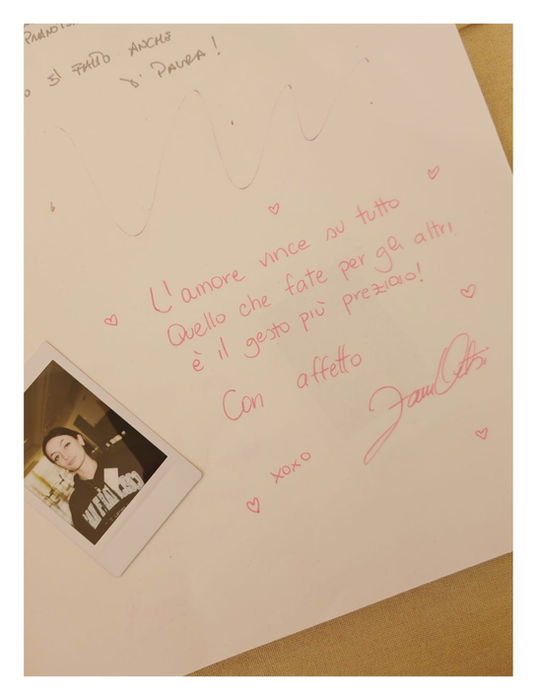 SI FATTO ANCHE
DI PAURA!
L'amore vince su tutto
Quello che fate per gli altri
è il gesto più prezioso!
Con affetto
xoxo